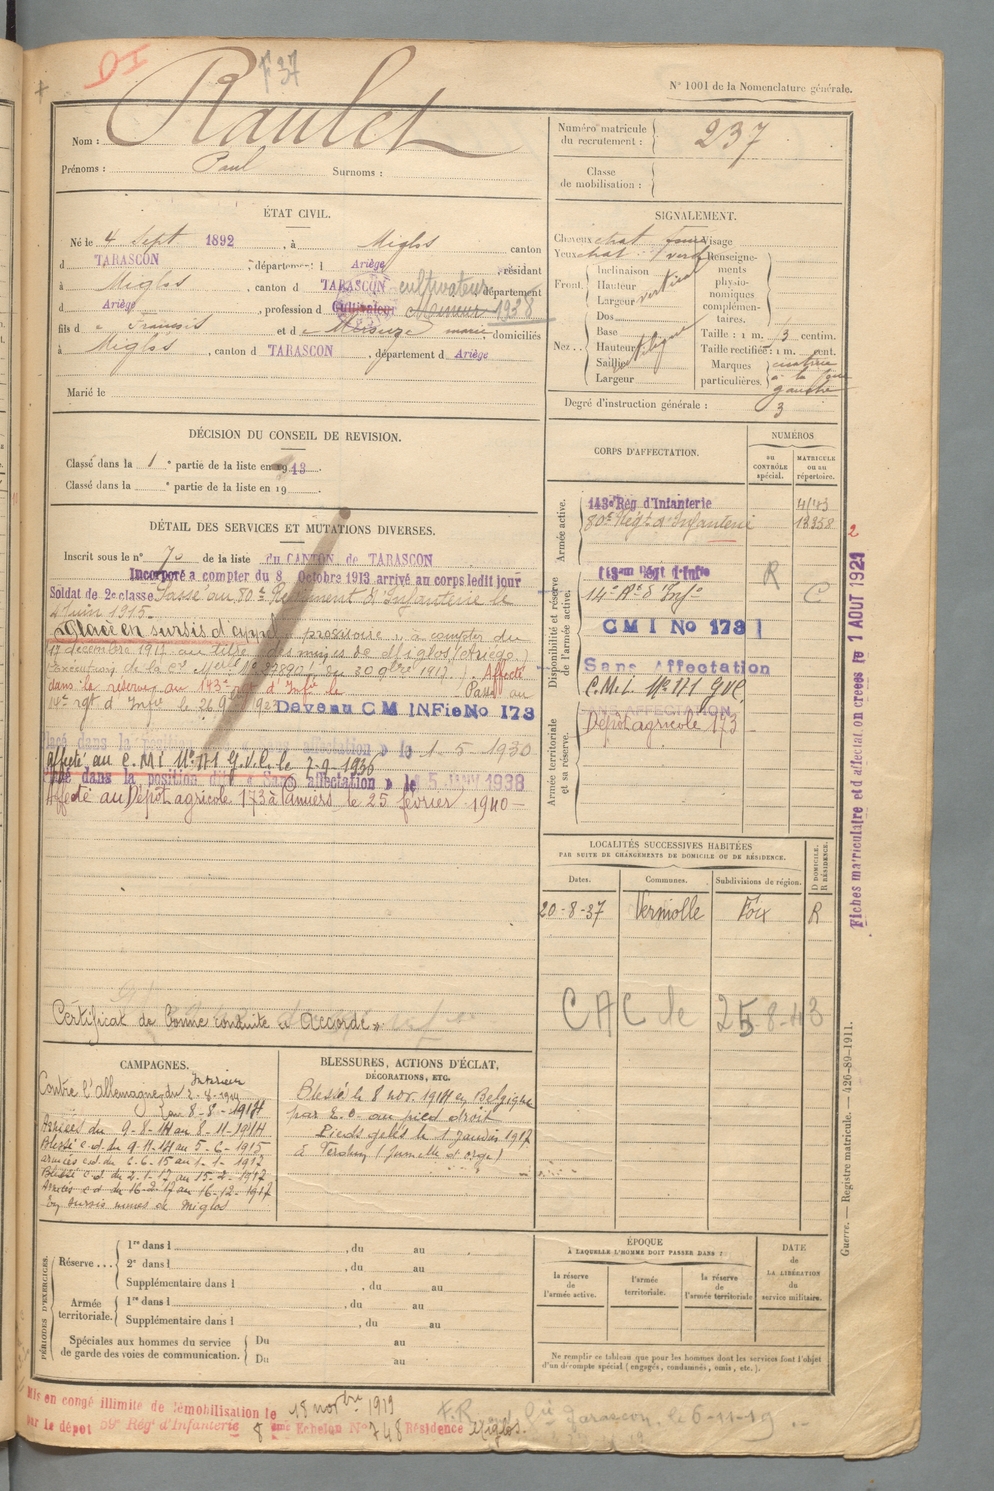 F 37
N° 1001 de la Nomenclature générale.
Nom : Raulet
Prénoms : Paul Surnoms :
Numéro matricule du recrutement : 237
Classe de mobilisation :
ÉTAT CIVIL.
Né le 4 Sept 1892, à Miglos canton
d TARASCON, département d Ariège, résidant
à Miglos, canton d TARASCON, département
d Ariège, profession d Cultivateur Mineur cultivateur 1938
fils d e François et d e marie, domiciliés
à Miglos, canton d TARASCON, département d Ariège
Marié le
SIGNALEMENT.
Cheveux chat Visage
Yeux chat vert
Front. Inclinaison
Hauteur
Largeur
vertical
Nez.. Dos
Base
Hauteur
Saillie
Largeur
Renseignements physionomiques complémentaires.
Taille : 1 m. centim.
Taille rectifiée : 1 m. cent.
Marques particulières. cicatrice à la joue gauche
Degré d'instruction générale : 3
DÉCISION DU CONSEIL DE REVISION.
Classé dans la 1e partie de la liste en 1913.
Classé dans la e partie de la liste en 19
DÉTAIL DES SERVICES ET MUTATIONS DIVERSES.
Inscrit sous le n° de la liste du CANTON de TARASCON
Incorporé a compter du 8 Octobre 1913 arrivé au corps ledit jour
Soldat de 2e classe Passé au 80e Régiment d'Infanterie le
4 Juin 1915.
Placé en sursis d'appel provisoire à compter du
17 décembre 1917 au titre des mines de Miglos (Ariège)
(exécution de la Cre Melle N° du 30 9bre 1917). Affecté
dans la réserve au 143e rgt d'Infie le Passé au
14e rgt d'Infie le Devenu CM INFie No 173
Placé dans la affectation » le 1-5-1930
affecté au C.M.I N° 171 G.V.C. le 7-9-1936
Placé dans la position dite « Sans affectation » le 15 JANV 1938
Affecté au Dépôt agricole 173 à Pamiers le 25 février 1940 -
Certificat de bonne conduite « Accordé ».
CORPS D'AFFECTATION.
NUMÉROS
au CONTRÔLE spécial.
MATRICULE ou au répertoire.
Armée active.
143e Rég d'Infanterie
80e Régt d'Infanterie 12358
Disponibilité et réserve de l'armée active.
143me Régt d'Infie R
14e Rt d'Infie C
CMI No 173
Sans Affectation
C.M.I. N° 171 GVC
Armée territoriale et sa réserve.
SANS AFFECTATION
Dépôt agricole 173
LOCALITÉS SUCCESSIVES HABITÉES
PAR SUITE DE CHANGEMENTS DE DOMICILE OU DE RÉSIDENCE.
Dates. Communes. Subdivisions de région. D DOMICILE. R RÉSIDENCE.
20-8-37 Verniolle Foix R
CAC le 25-8-43
Fiches matriculaire et d affectation creees le 1 AOUT 1921
Guerre. — Registre matricule. — 426-89-1911.
CAMPAGNES.
Contre l'Allemagne du 2-8-1914
Intérieur
au 8-8-1914
Armées du 9-8-14 au 8-11-1914
Blessé c.d. du 9-11-14 au 5-6-1915
armées c.d. du 6-6-15 au 1-1-1917
Blessé c.d. du 2-1-17 au 15-2-1917
Armées c.d. du 16-2-17 au 16-12-1917
En sursis mines de Miglos
BLESSURES, ACTIONS D'ÉCLAT,
DÉCORATIONS, ETC.
Blessé le 8 nov. 1914 en Belgique
par E.O. au pied droit
Pieds gelés le 1 janvier 1917
à Verdun
PÉRIODES D'EXERCICES.
Réserve... 1re dans l , du au
2e dans l , du au
Supplémentaire dans l , du au
Armée territoriale. 1re dans l , du au
Supplémentaire dans l , du au
Spéciales aux hommes du service de garde des voies de communication. Du au
Du au
ÉPOQUE
À LAQUELLE L'HOMME DOIT PASSER DANS :
la réserve de l'armée active.
l'armée territoriale.
la réserve de l'armée territoriale
DATE de LA LIBÉRATION du service militaire.
Ne remplir ce tableau que pour les hommes dont les services font l'objet
d'un décompte spécial (engagés, condamnés, omis, etc.).
Mis en congé illimité de démobilisation le 18 novbre 1919
par le dépot 59e Régt d'Infanterie 8 eme Echelon N° 748 Résidence Miglos.
F.R. Tarascon, le 6-11-19